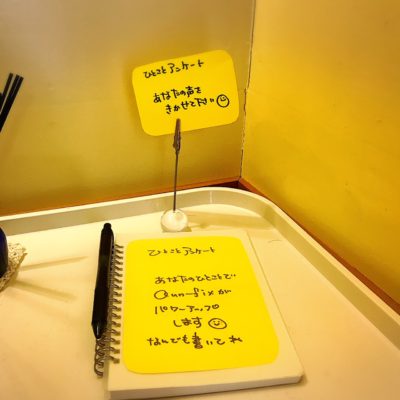 ひとことアンケート
あなたの声を
きかせて下さい
ひとことアンケート
あなたのひとことで
un-fixが
パワーアップ
します
なんでも書いてね